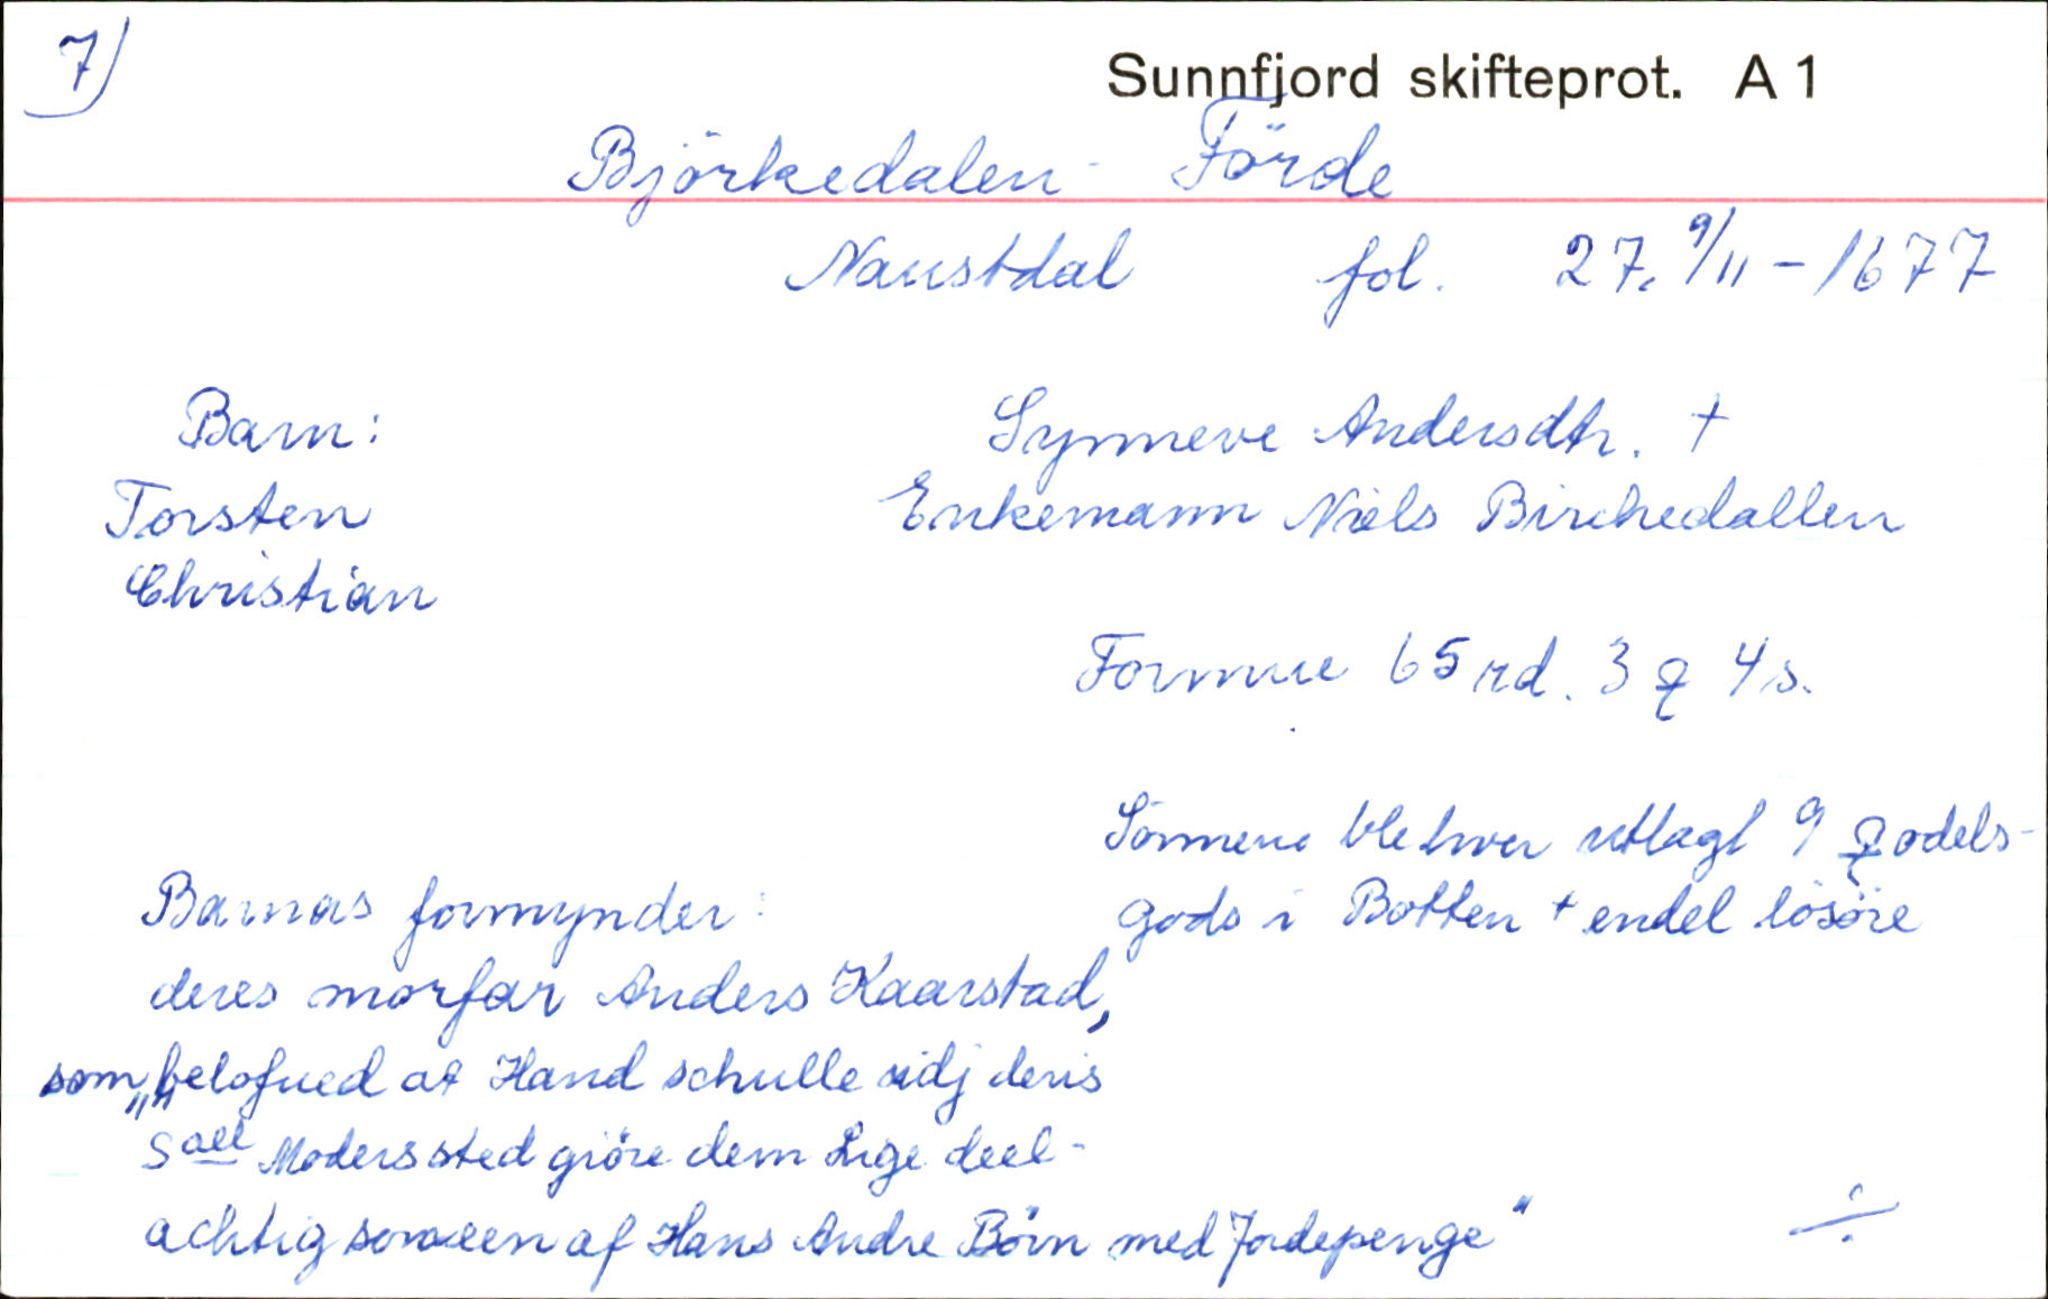 7)
Sunnfjord skifteprot. A 1
Björkedalen - Förde
Naustdal fol. 27. 9/11 - 1677
Barn: Synneve Andersdtr. †
Torsten Enkemann Niels Birchedallen
Christian
Formue 65 rd. 3 ƺ 4 s.
Sönnene ble hver utlagt 9 ƺ odels-
gods i Botten + endel lösöre
Barnas formynder:
deres morfar Anders Kaarstad,
som „belofued at Hand schulle udj deris
Sall Moders sted giöre dem Lige deel-
achtig som een af Hans Andre Börn med Jordepenge"
÷